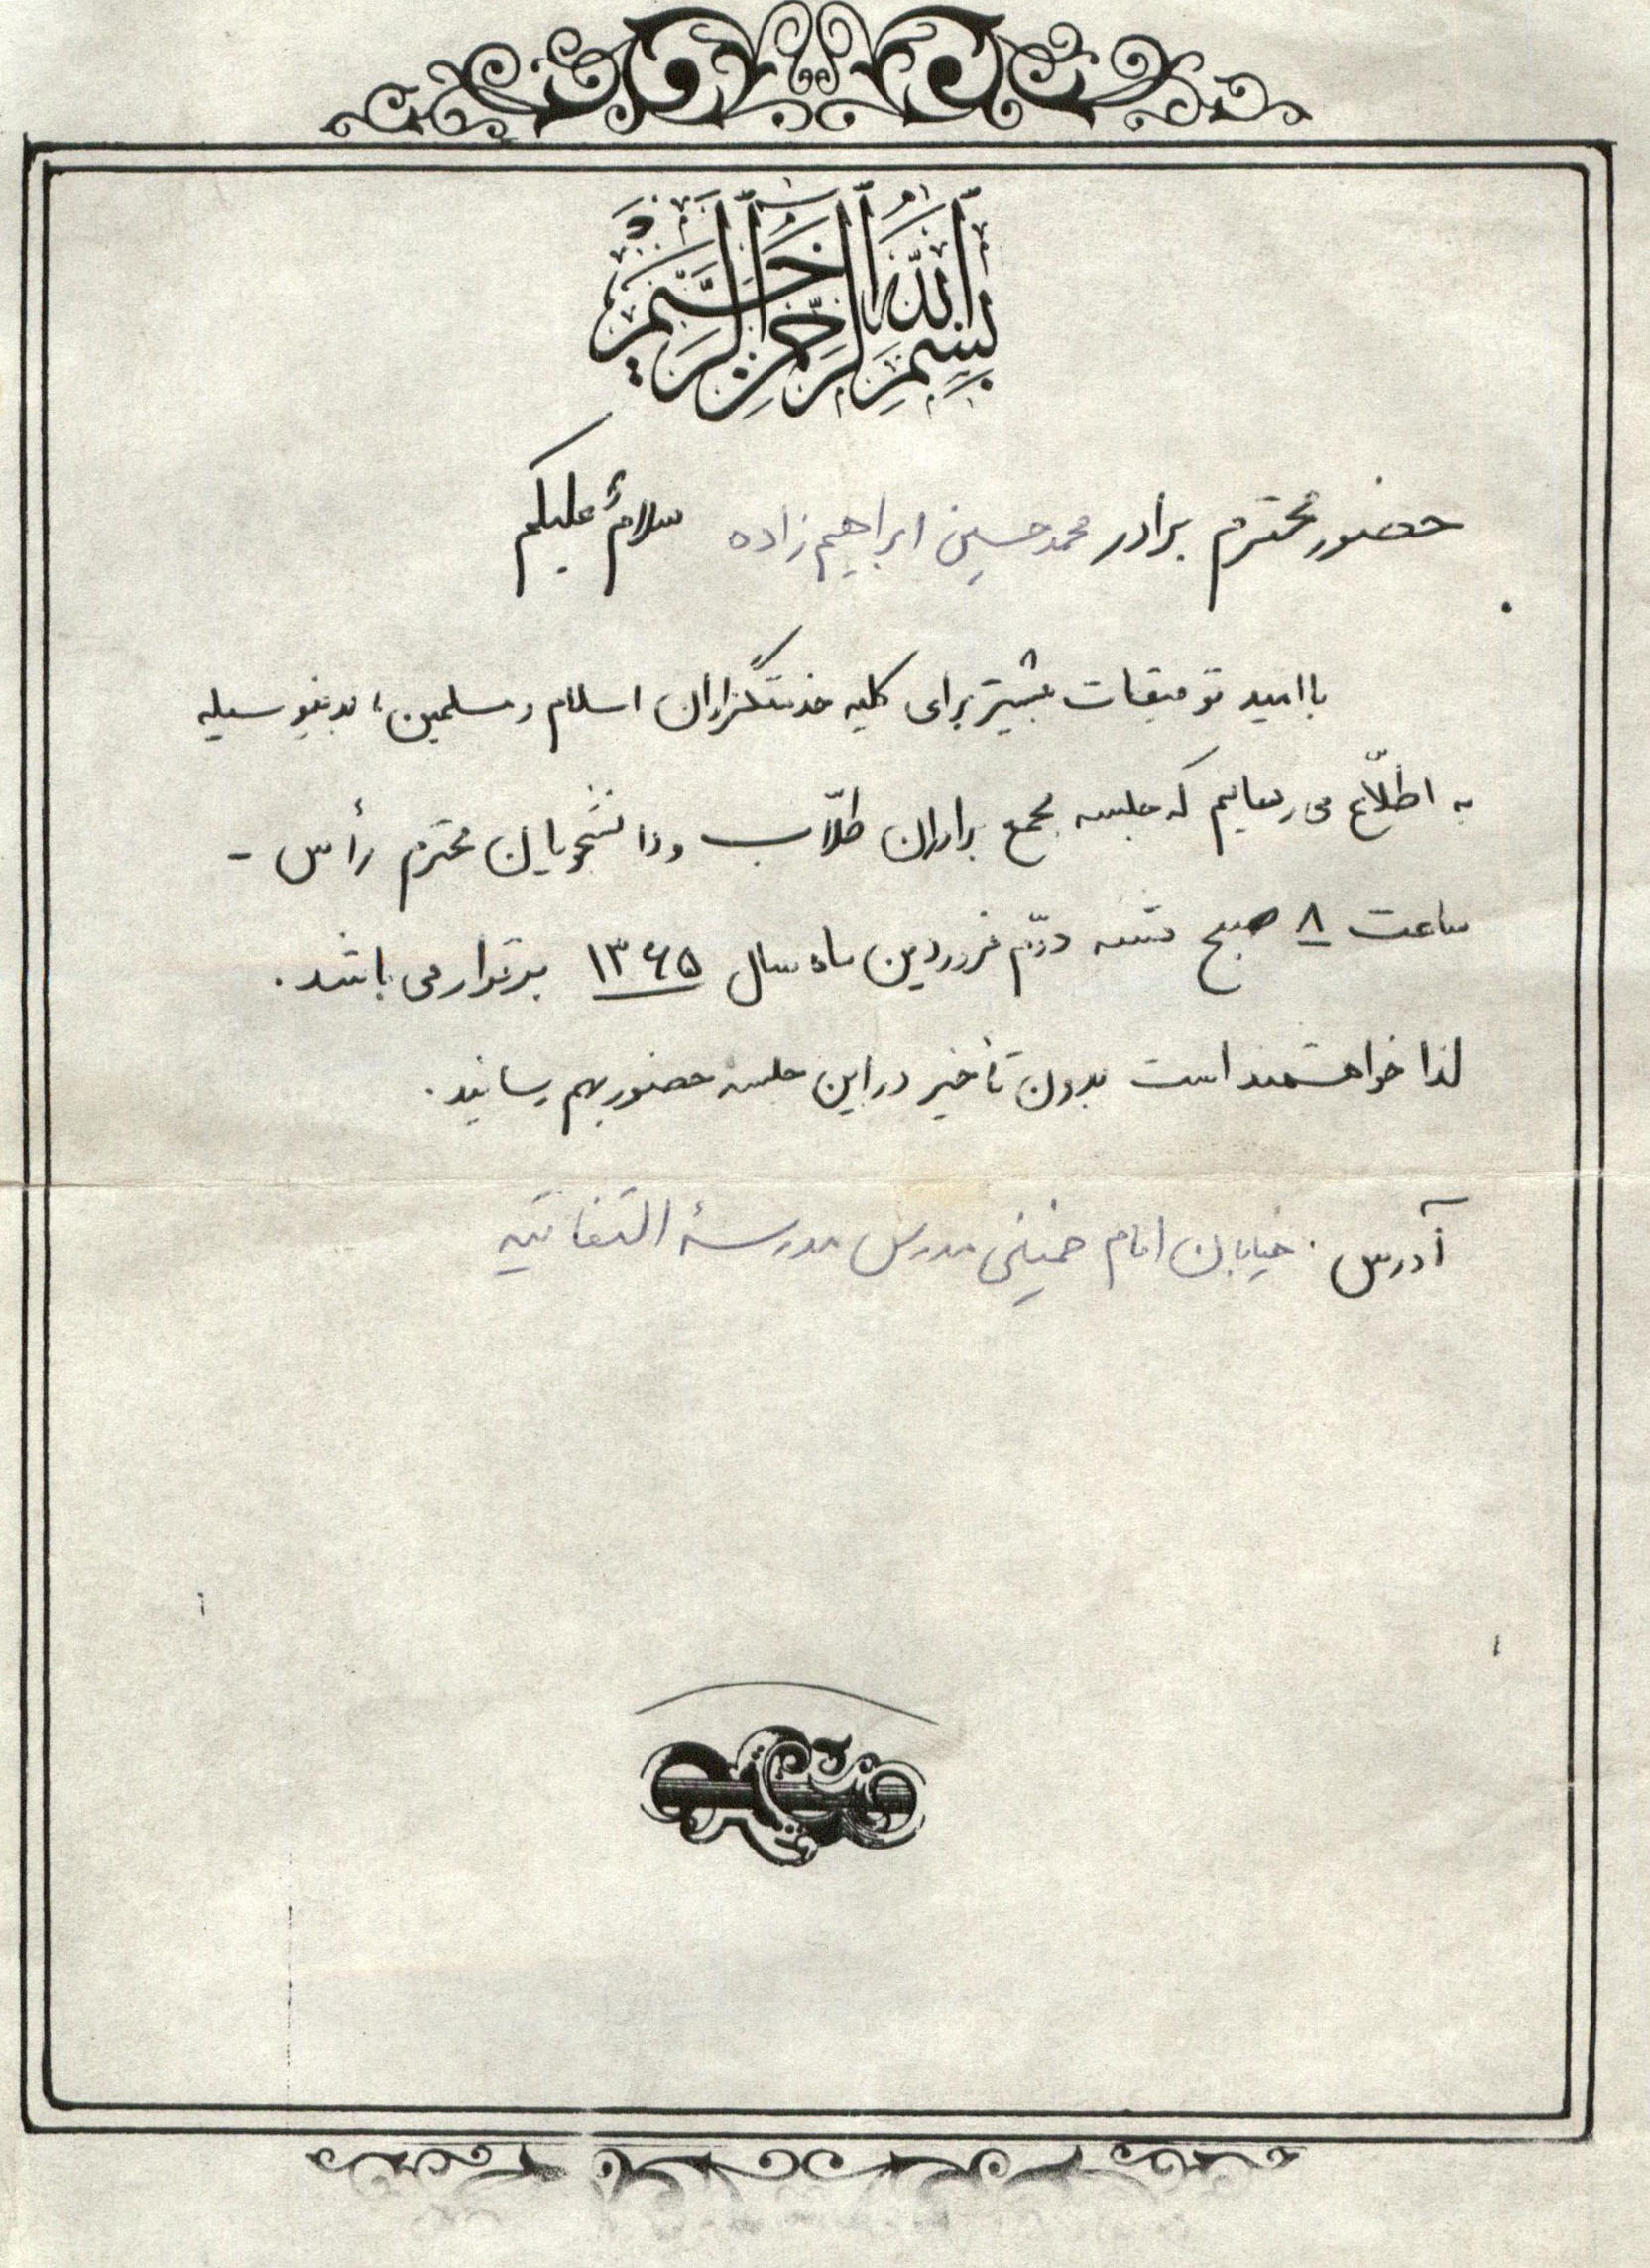 بسم الله الرحمن الرحیم
حضور محترم برادر محمدحسین ابراهیم زاده سلامٌ علیکم
با امید توفیقات بیشتر برای کلیه خدمتگزاران اسلام و مسلمین، بدینوسیله
به اطلّاع می رسانیم که جلسه مجمع برادران طلّاب و دانشجویان محترم رأس -
ساعت ۸ صبح شنبه دوّم فروردین ماه سال ۱۳۶۵ برقرار می باشد.
لذا خواهشمند است بدون تأخیر در این جلسه حضور بهم رسانید.
آدرس: خیابان امام خمینی مدرس مدرسۀ التفاتیه